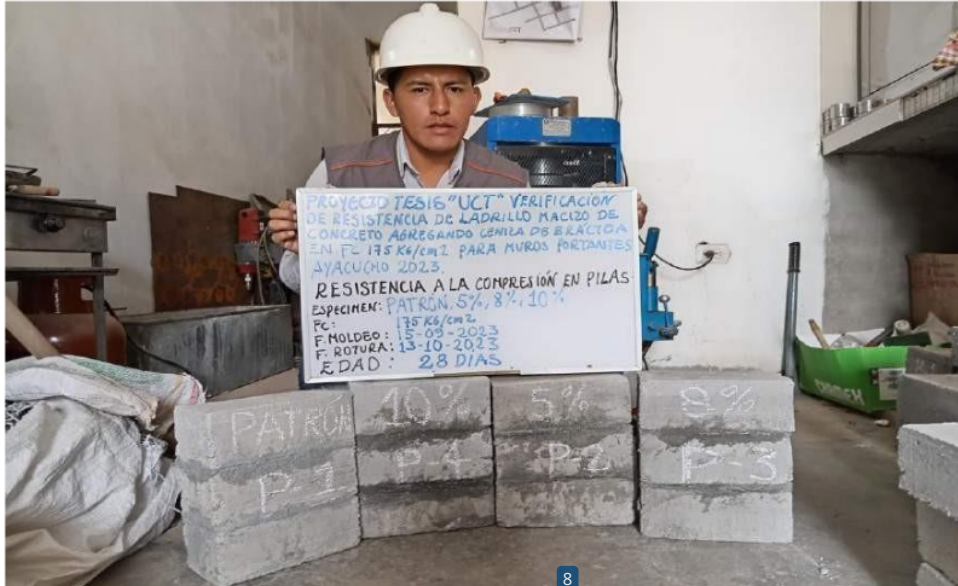 PROYECTO TESIS "UCT" VERIFICACIÓN
DE RESISTENCIA DE LADRILLO MACIZO DE
CONCRETO AGREGANDO CENIZA DE BRÁCTEA
EN FC 175 KG/cm2 PARA MUROS PORTANTES
AYACUCHO 2023.
RESISTENCIA A LA COMPRESIÓN EN PILAS
ESPECIMEN: PATRÓN, 5%, 8%, 10%
FC: 175 KG/cm2
F. MOLDEO: 15-09-2023
F. ROTURA: 13-10-2023
EDAD: 28 DIAS
PATRÓN
P-1
10%
P-4
5%
P-2
8%
P-3
8